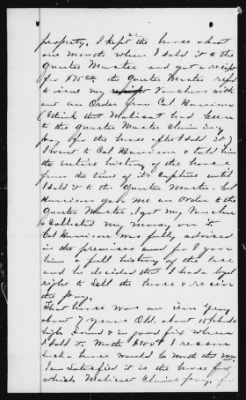 property. I kept the horse about
one month when I sold it to the
Quarter Master and got a receipt
for $150 the Quarter Master refused
to issue my Voucher with
out an Order from Col Harrison
(I think that Malicoat had been
to the Quarter Master claiming
pay for the horse after I sold it)
I went to Col Harrison & told him
the entire history of the horse
from the time of its Capture until
I sold it to the Quarter Master. Col
Harrison gave me an Order to the
Quarter Master. I got my Voucher
& Collected my money on it
Col Harrison was fully advised
in the premises and for I gave
him a full history of the case
and he decided that I had a legal
right to sell the horse & receive
the pay.
That horse was an iron Gray
about 7 years Old about 15½ hands
high sound & in good fix when
I sold it. Worth $150. I reason
such a horse would be worth that now
I am satisfied it is the horse for
which Malicoat Claims pay, for